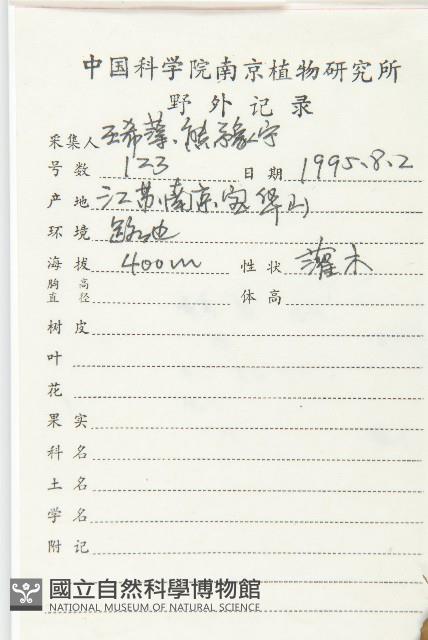 中国科学院南京植物研究所
野外记录
采集人 王希蕖、熊豫宁
号数 123 日期 1995.8.2
产地 江苏、南京、宝华山
环境
海拔 400m 性状 灌木
胸高直径 体高
树皮
叶
花
果实
科名
土名
学名
附记
國立自然科學博物館
NATIONAL MUSEUM OF NATURAL SCIENCE